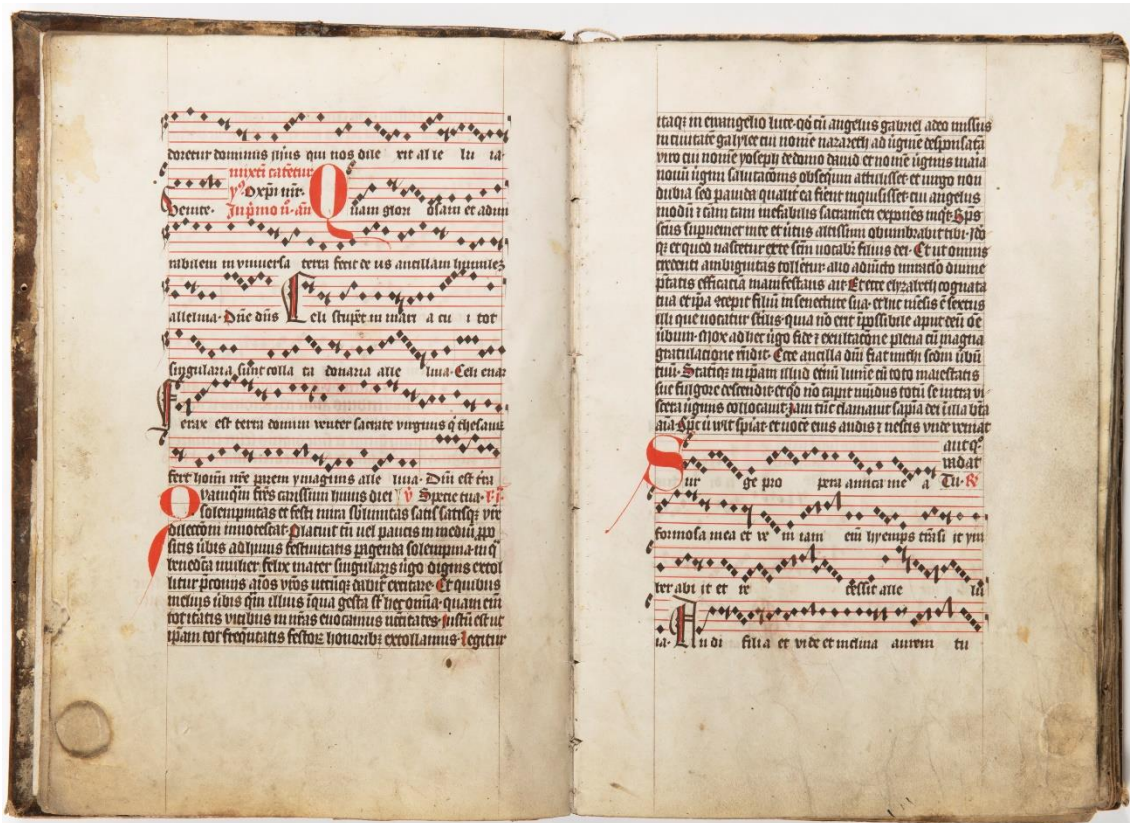 doretur dominus filius qui nos dile xit al le lu ia·
mixti catetur
yͦ· O xp̄i nīr·
Venite· In p̄mo n̄· an̄ Quam glori osam et admi
rabilem in vniuersa terra fecit de us ancillam humilez
alleluia· Dn̄e dn̄s Celi stupēt in mari a cu i tot
singularia sunt colla ta donaria alle luia· Celi enar
Ferax est terra domini venter sacrate virginis q̄ thesaur
fert homī nr̄e p̄rem ymaginis alle luia· Dn̄i est t̄ra
Ovamqm̄ fr̄es carissimi huius diei v̄ Specie tua·
solempnitas et festi mira sb̄limitas satis satisq̄ vr̄e
dilectōni innotescat· Placuit tn̄ vel paucis in mediū ꝓpo
sitis v̄bis ad huius festiuitatis ꝑagenda solempnia in q̄
benedc̄a mulier felix mater singularis v̄go dignis extol
litur p̄coniis aīos vr̄os vtcūq̄ dabit̄ excitare· Et quibus
melius v̄bis qm̄ illius
tot etatis vicibus in nr̄as euocamus vtilitates· Iustū est ut
ip̄am tot frequētatis festoꝝ honorib; extollamus· Legitur
itaq̄ in euangelio luce· qd̄ cū angelus gabriel a deo missus
in ciuitatē galylee cui nomē nazareth ad v̄ginē desponsatā
viro cui nomē yoseph de domo dauid et nomē v̄ginis maīa
nouū v̄gini salutacōnis obsequiū attulisset et virgo non
dubia sed pauida qualit̄ ea fierēt inquisisset· cui angelus
modū ꞇ cam tam ineffabilis sacramēti exponēs inqͥt· Sp̄s
sc̄us supueniet in te et v̄tus altissimi obumbrabit tibi· Ido
qͣ et quod nascetur ex te sc̄m vocabr̄ filius dei· Et ut omnis
credenti ambiguitas tolleretur· alio adiūcto miraclō diuine
p̄tatis efficaciā manifestans ait· Et ecce elyzabeth cognata
tua et ip̄a cōcepit filiū in senectute sua· et hic mēsis ē sextus
illi que vocatur st̄ilis· quia nō erit īpossibile aput deū oē
v̄bum· Mox ad hec v̄go fide ꞇ exultacōne plena cū magna
gratulacione rn̄dit· Ecce ancilla dn̄i fiat michi scd̄m v̄bū
tuū· Statiq̄ in ip̄am illud et̄nū lumē cū toto maiestatis
sue fulgore descendit· et qd̄ nō capit mūdus totū se intra vi
scera v̄ginis collocauit· Iam tūc clamauit sap̄ia dei illa bt̄a
aīa· Sp̄c ū wlt sp̄iat· et vocē eius audis ꞇ nescis vnde veniat
aut qͦ
vadat
Sur ge pro pera amica me a Tu· R̄
formosa mea et ve ni iam em̄ hyemps trāsi it ym
ber abi it et re cessit alle lu
ia· Audi filia et vide et inclina aurem tu